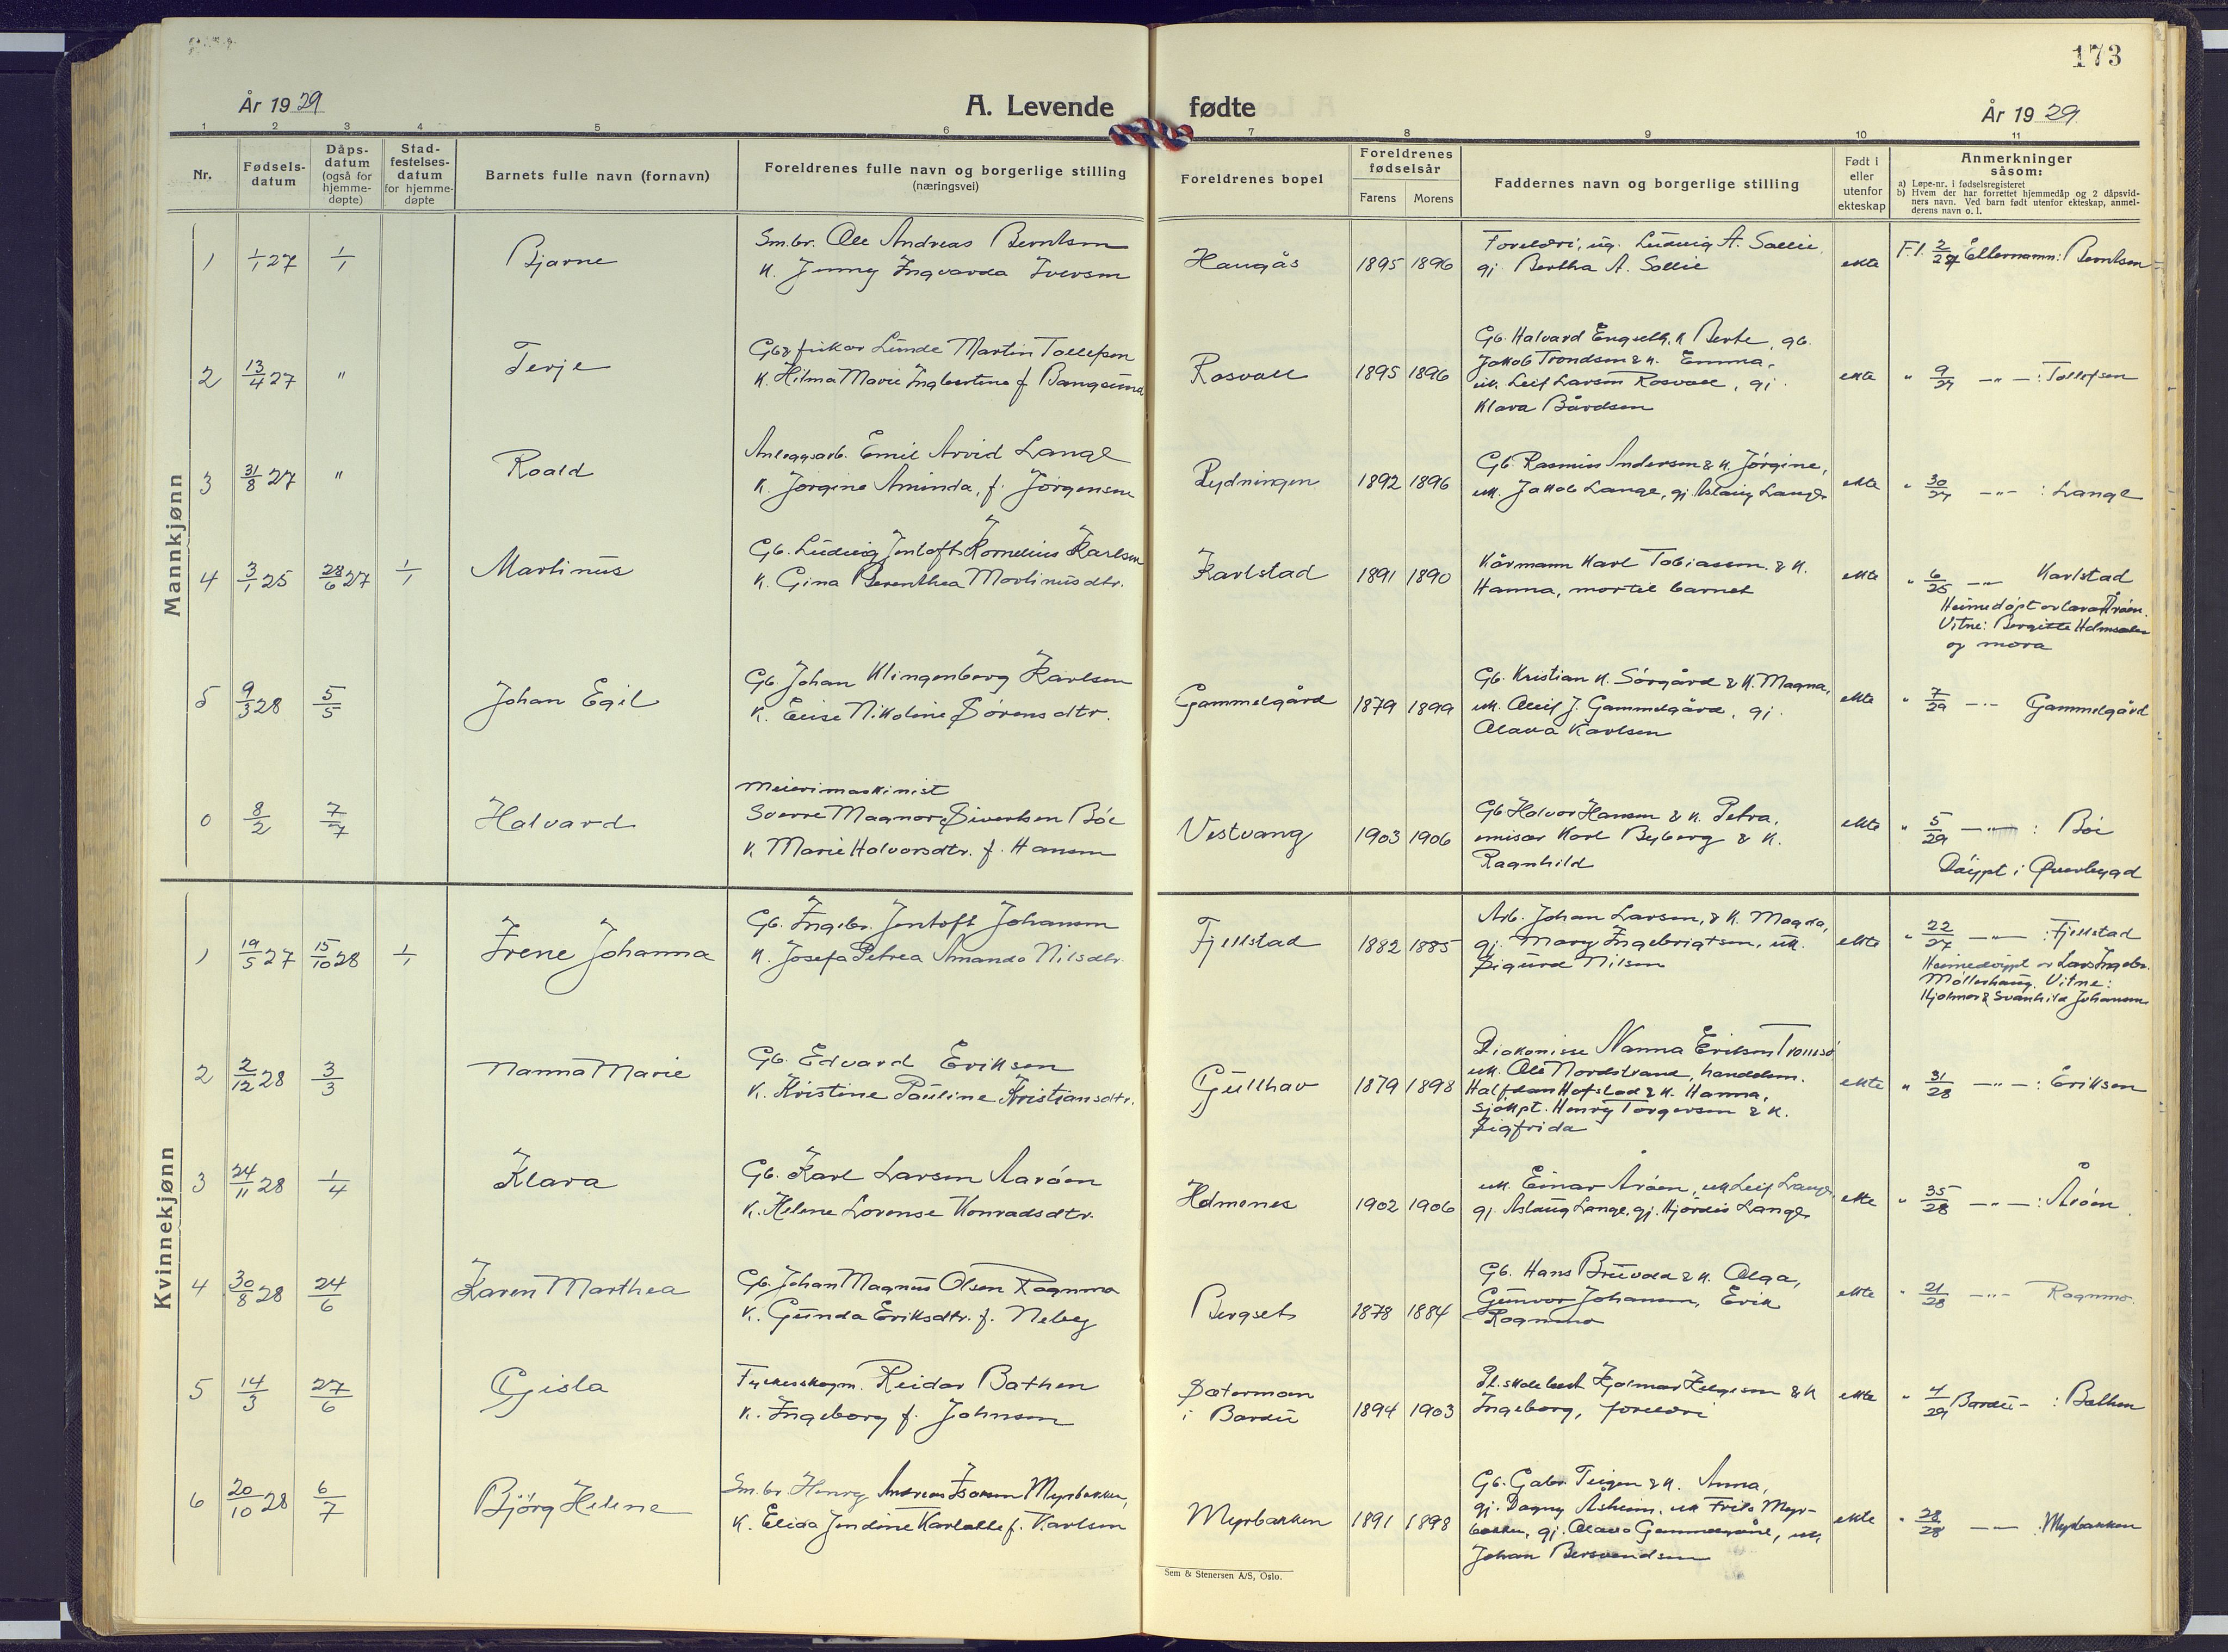 173
År 1929
A. Levende fødte
År 1929
1 2 3 4 5 6 7 8 9 10 11
Nr.
Fødsels-
datum
Dåps-
datum
(også for
hjemme-
døpte)
Stad-
festelses-
datum
for hjemme-
døpte
Barnets fulle navn (fornavn)
Foreldrenes fulle navn og borgerlige stilling
(næringsvei)
Foreldrenes bopel
Foreldrenes
fødselsår
Farens Morens
Faddernes navn og borgerlige stilling
Født i
eller
utenfor
ekteskap
Anmerkninger
såsom:
a) Løpe-nr. i fødselsregisteret
b) Hvem der har forrettet hjemmedåp og 2 dåpsvid-
ners navn. Ved barn født utenfor ekteskap, anmel-
derens navn o. l.
Mannkjønn
1 1/1 27 1/1 Bjarne
Sm.br. Ole Andreas Berntsen
K. Jenny Ingvarda Iversen
Haugås 1895 1896
Foreldri, ug. Ludvig A. Sollie
gj Bertha A. Sollie
ekte
F.l. 2/27 Etternamn: Berntsen
2 13/4 27 " Terje
Gb & fiskar Lunde Martin Tollefsen
K. Hilma Marie Ingbertine f. Bangsund
Rosvoll 1895 1896
Gb. Halvard Engseth, K Berte, gb.
Jakob Trondsen & K. Emma,
uk. Leif Larsen Rosvoll, gj.
Klara Bårdsen
ekte
" 9/27 —"— : Tollefsen
3 31/8 27 " Roald
Anleggsarb. Emil Arvid Lange
K. Jørgine Aminda, f. Jørgensen
Rydningen 1892 1896
Gb. Rasmus Andersen & K. Jørgine,
uk. Jakob Lange, gj Aslaug Lange
ekte
" 30/27 —"— : Lange
4 3/1 25 28/6 27 1/1 Martinus
Gb. Ludvig Jentoft Kornelius Karlsen
K. Gina Berenthea Martinusdtr.
Karlstad 1891 1890
Kårmann Karl Tobiassen & K.
Hanna, mor til barnet
ekte
" 6/25 —"— Karlstad
Heimedøpt av Årøen.
Vitne: Bergitte
og mora
5 9/3 28 5/5 Johan Egil
Gb. Johan Klingenberg Karlsen
K. Elise Nikoline Sørensdtr.
Gammelgård 1879 1899
Gb. Kristian K. Sørgård & K. Magna,
uk. Oleif J. Gammelgård, gj.
Olava Karlsen
ekte
" 7/29 —"— Gammelgård
0 8/2 7/7 Halvard
Meierimaskinist
Sverre Magnor Sivertsen Bøe
K. Marie Halvorsdtr. f. Hansen
Vestvang 1903 1906
Gb Halvor Hansen & K. Petra,
emisær Karl Byberg & K.
Ragnhild
ekte
" 5/29 —"— : Bøe
Døypt i Øverbygd
Kvinnekjønn
1 19/5 27 15/10 28 1/1 Irene Johanna
Gb. Ingebr. Jentoft Johansen
K. Josefa Petrea Amanda Nilsdtr.
Fjellstad 1882 1885
Arb. Johan Larsen, & K. Magda,
gj. Mary Ingebrigtsen, uk.
Sigurd Nilsen
ekte
" 22/27 —"— : Fjellstad
Heimedøypt av Lars Ingebr.
Møllerhaug. Vitne:
Hjalmar & Svanhild Johansen
2 2/12 28 3/3 Nanna Marie
Gb. Edvard Eriksen
K. Kristine Pauline Kristiansdtr.
Gullhav 1879 1898
Diakonisse Nanna Eriksen Tromsø
uk. Ole Nordstrand, handelsm.
Halfdan Hofstad & K. Hanna,
sjøkpt. Henry Torgersen & K.
Sigfrida
ekte
" 31/28 —"— : Eriksen
3 24/11 28 1/4 Klara
Gb. Karl Larsen Aarøen
K. Helene Lorense Konradsdtr.
Holmenes 1902 1906
uk. Einar Årøen, uk Leif Lange,
gj. Aslaug Lange, gj. Hjørdis Lange
ekte
" 35/28 —"— : Årøen
4 30/8 28 24/6 Karen Marthea
Gb. Johan Magnus Olsen Rognmo
K. Gunda Eriksdtr. f. Neby
Bergset 1878 1884
Gb. Hans Bruvold & K. Olga,
Gunvor Johansen, Erik
Rognmo
ekte
" 21/28 —"— Rognmo
5 14/3 27/6 Gisla
Fylkesskogm. Reidar Bathen
K. Ingeborg f. Johnsen
Sætermoen
i Bardu 1894 1903
Pl.skolebest Hjalmar Helgesen & K
Ingeborg, foreldri
ekte
" 4/29 Bardu — : Bathen
6 20/10 28 6/7 Bjørg Helene
Sm.br. Henry Andreas Isaksen Myrbakken,
K. Elida Jendine Karlotte f. Karlsen
Myrbakken 1891 1898
Gb. Gabr. Teigen & K. Anna,
gj. Dagny Åsheim, uk Frits Myr-
bakken, gj. Olava Gammelgård, uk
Johan Bersvendsen
ekte
" 28/28 —"— Myrbakken
Sem & Stenersen A/S, Oslo.